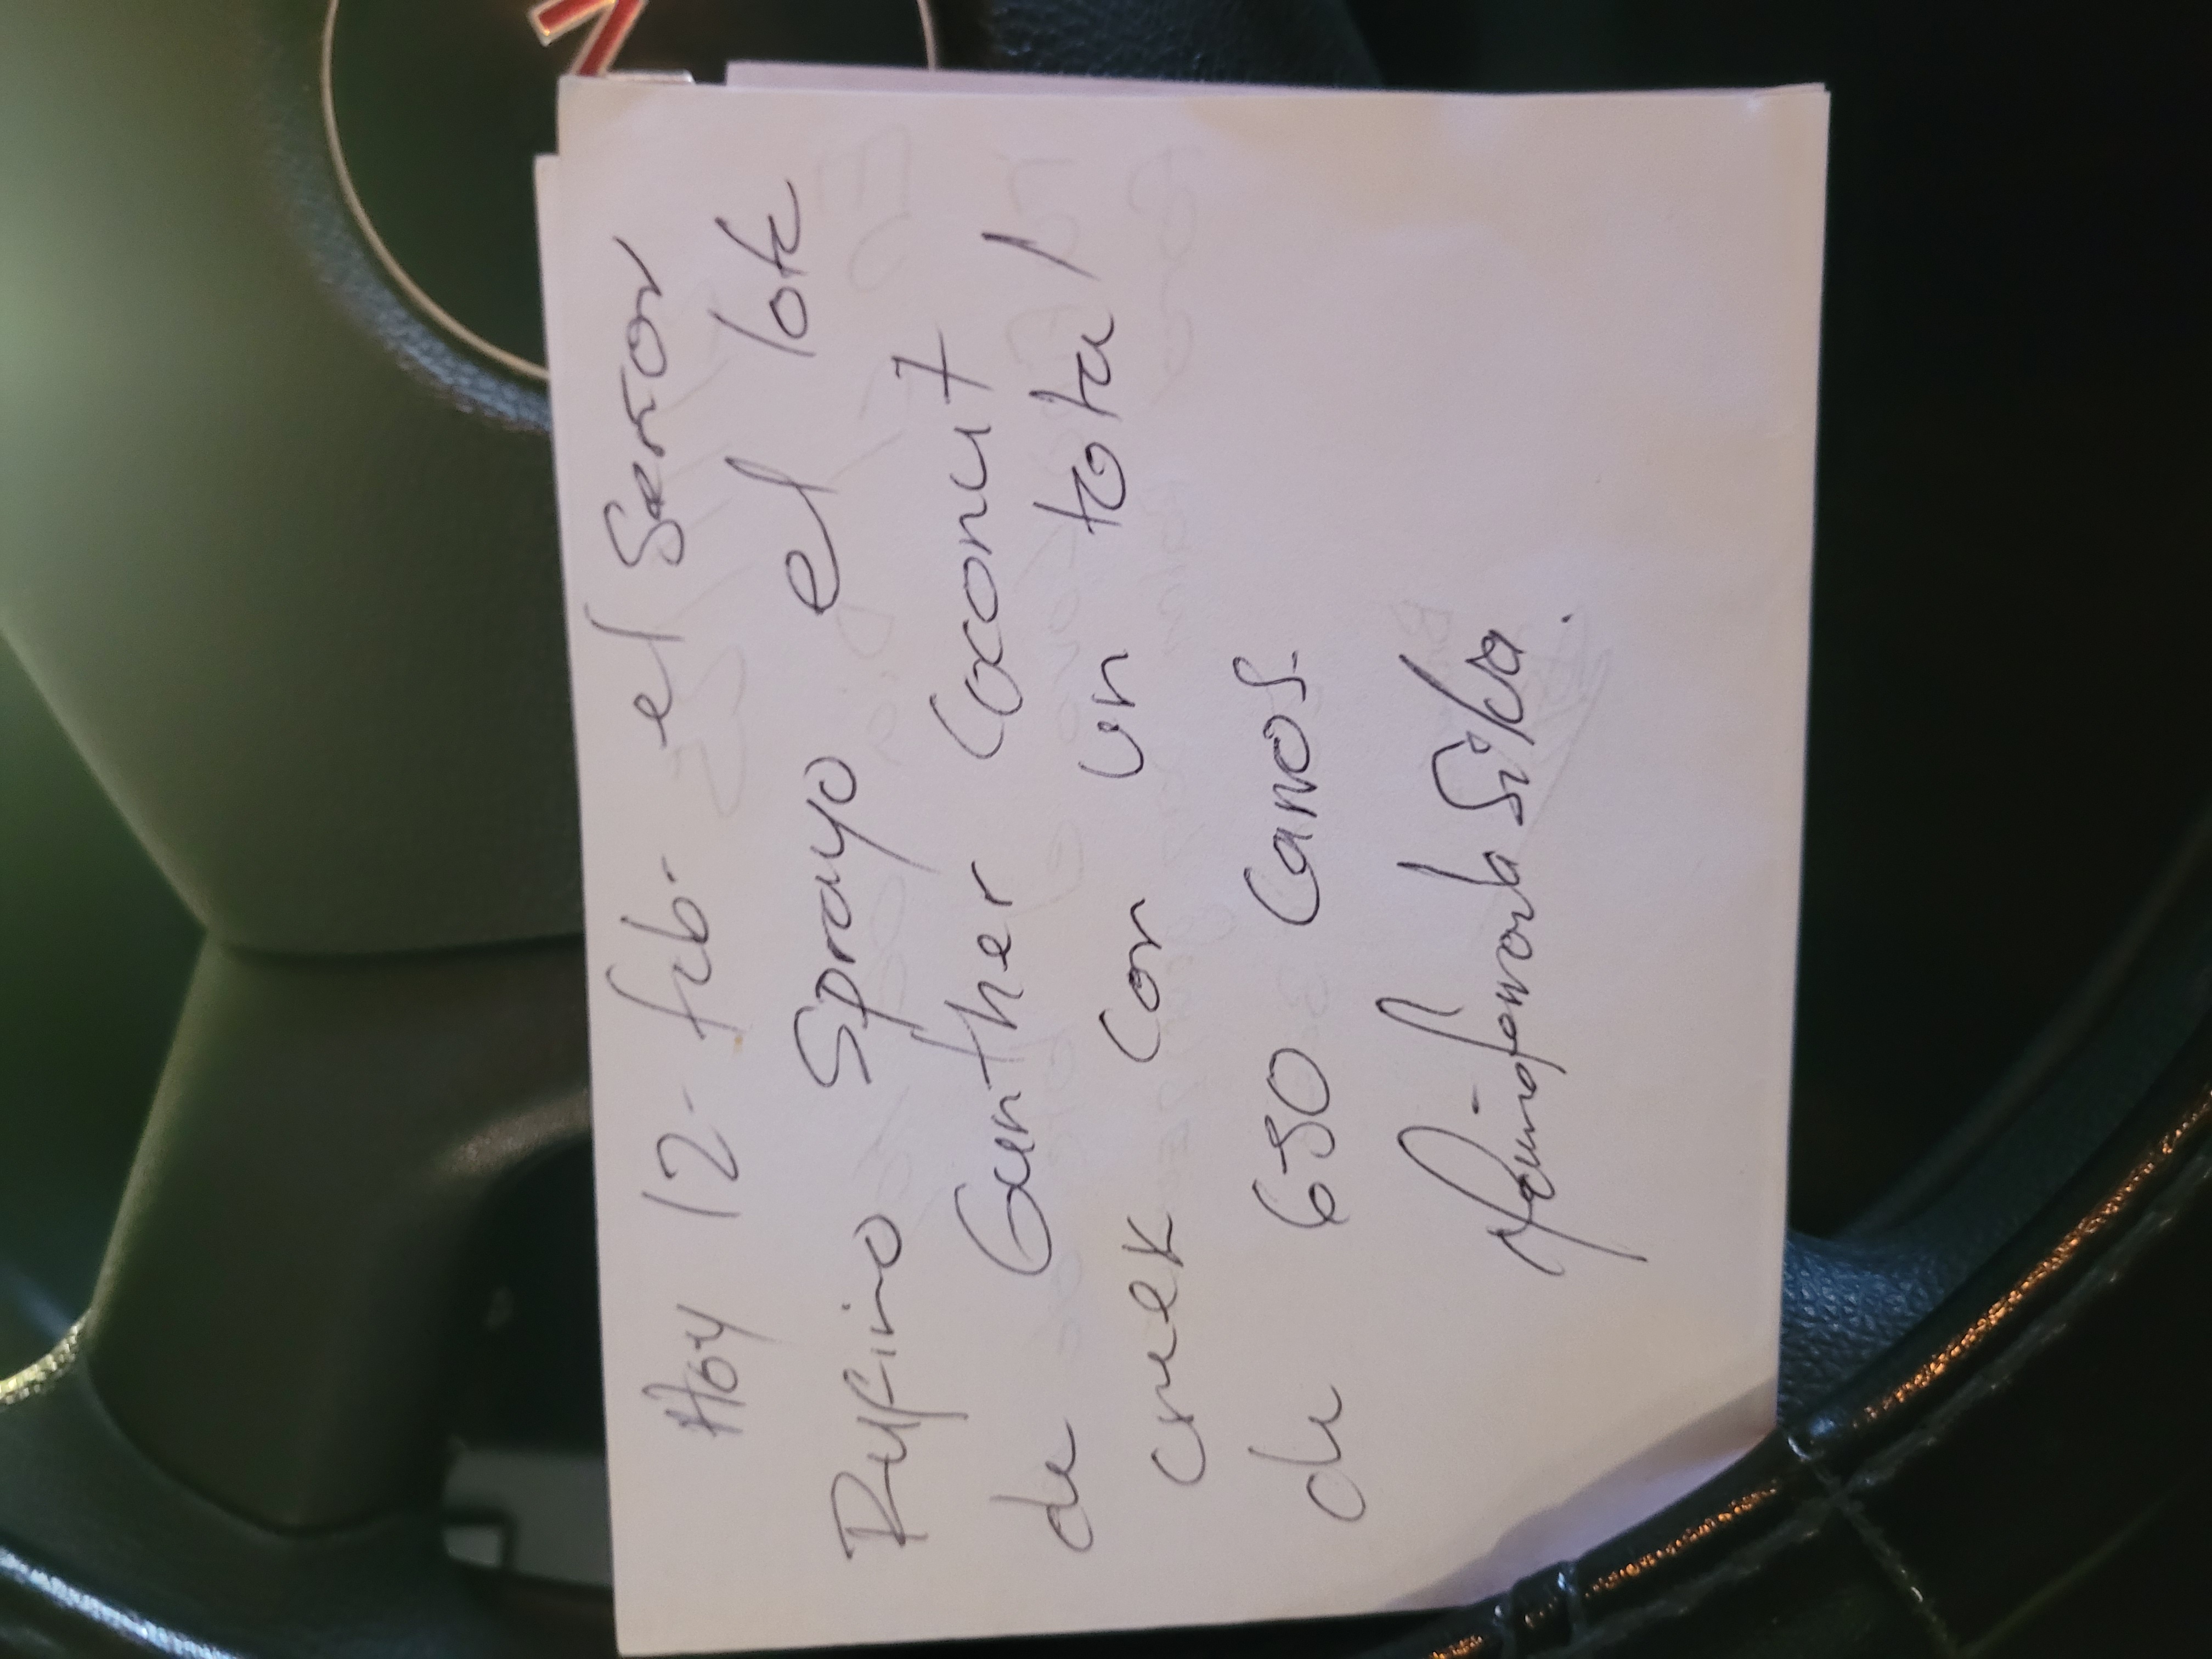 Hoy 12-feb- el Senor
Rufino Sprayo el lote
de Gunther Coconut
creek con un total
de 650 Canos.
Silva.